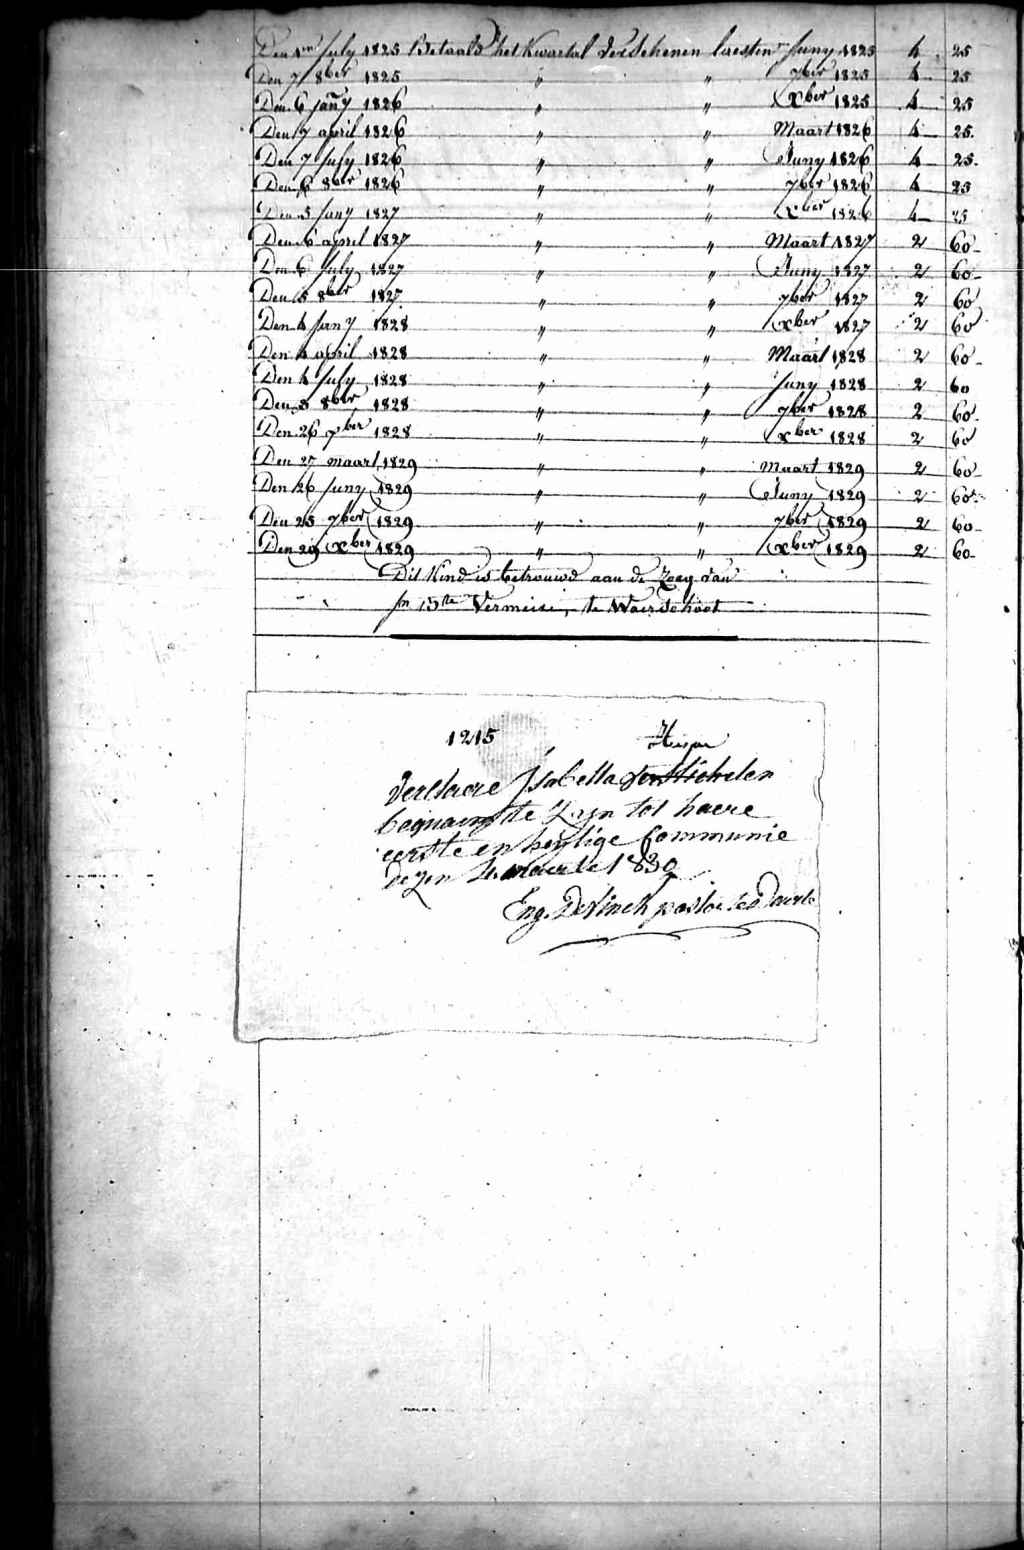 Den 1en July 1825 Betaald het Kwartal verschenen laesten Juny 1825 4 25
Den 7 8ber 1825 " " 7ber 1825 4 25
Den 6 Jany 1826 " " Xber 1825 4 25
Den 7 april 1826 " " Maart 1826 4 25
Den 7 July 1826 " " Juny 1826 4 25
Den 6 8ber 1826 " " 7ber 1826 4 25
Den 5 Jany 1827 " " Xber 1826 4 25
Den 6 april 1827 " " Maart 1827 2 60
Den 6 July 1827 " " Juny 1827 2 60
Den 5 8ber 1827 " " 7ber 1827 2 60
Den 4 Jany 1828 " " Xber 1827 2 60
Den 4 april 1828 " " Maart 1828 2 60
Den 4 July 1828 " " Juny 1828 2 60
Den 3 8ber 1828 " " 7ber 1828 2 60
Den 26 7ber 1828 " " Xber 1828 2 60
Den 27 maart 1829 " " Maart 1829 2 60
Den 26 Juny 1829 " " Juny 1829 2 60
Den 25 7ber 1829 " " 7ber 1829 2 60
Den 29 Xber 1829 " " Xber 1829 2 60
Dit Kind is betrouwd aan de Zorg van
Jn Bte Vermeire, te Waerschoot
1215
Verclaere Isabella
bequaem te zyn tot haere
eerste en heylige Communie
dezen 4 maerte 1830
Eng. De Vinck pastor